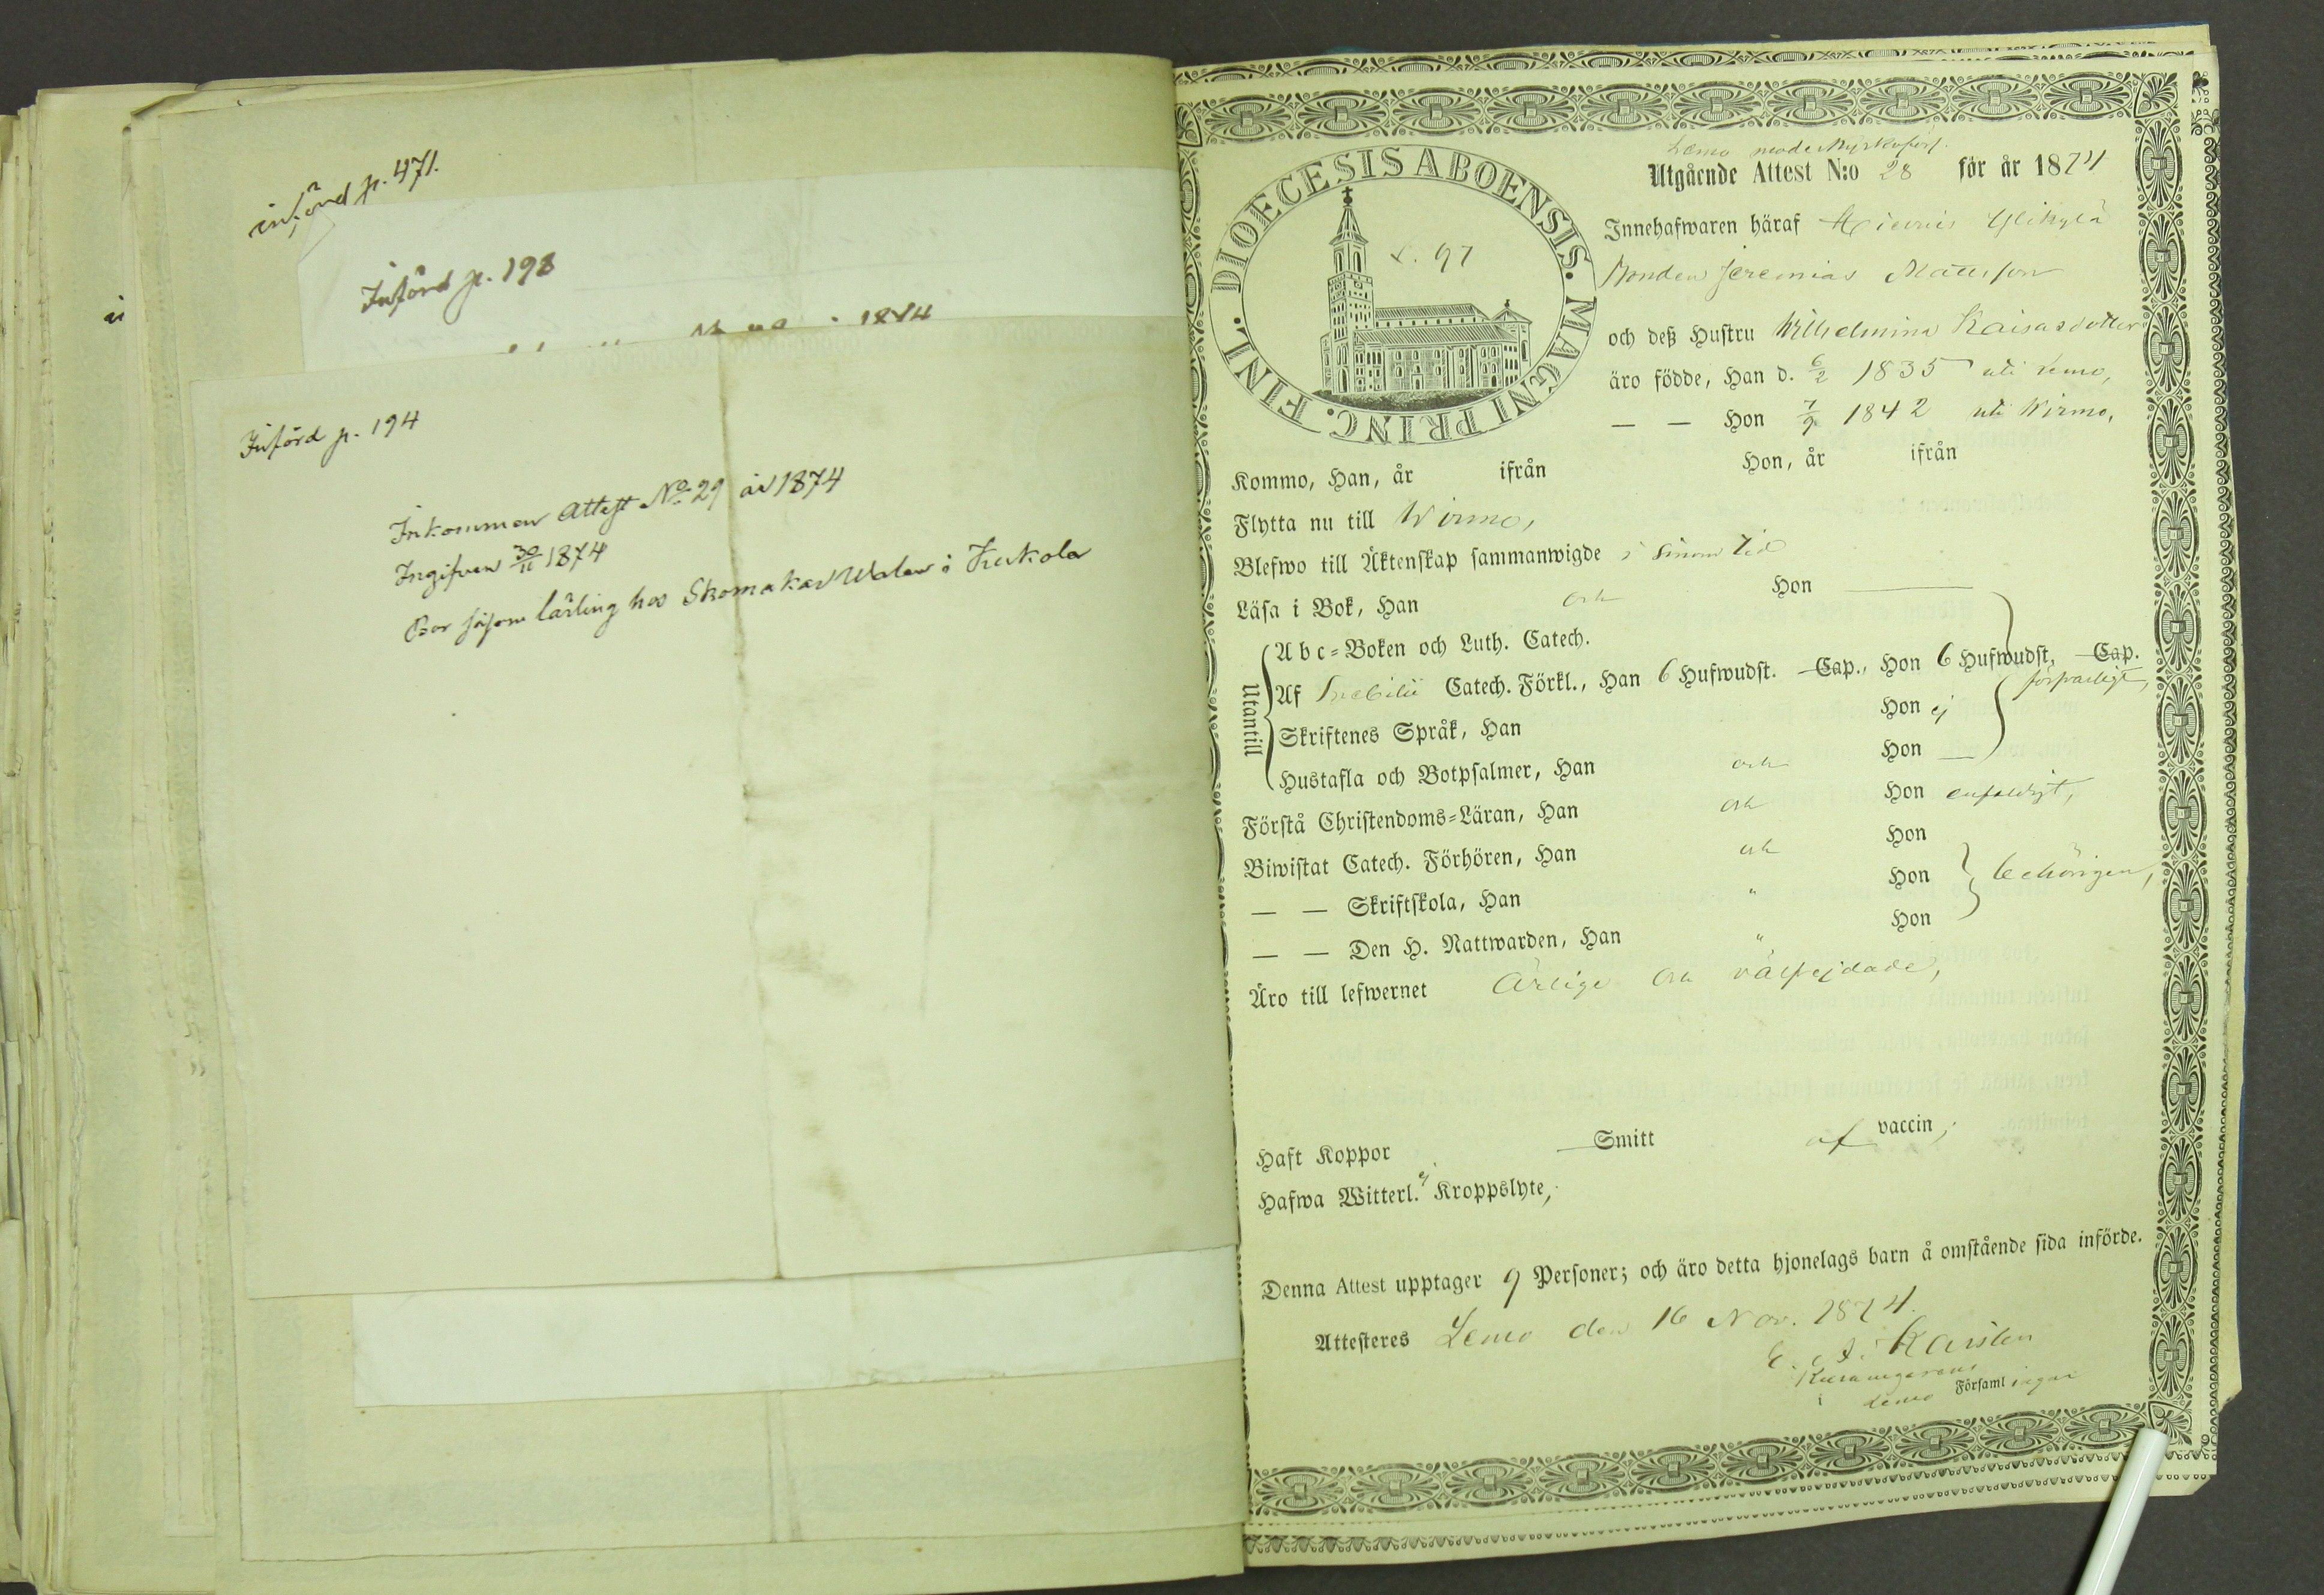 införd p. 471.
Införd p. 198
1874
Införd p. 194
Inkommen Attest No 29 år 1874
Ingifven 30/11 1874
Bor såsom lärling hos Skomakar Walen i Kukola
DIOECESIS ABOENSIS. MAGNI PRINC. FINL.
L. 97
Lemo moderkyrkoförs.
Utgående Attest N:o 28 för år 1874
Innehafwaren häraf Hierois Ylikylä
Bonden Jeremias Mattsson
och deß Hustru Wilhelmina Kaisasdotter
äro födde, Han d. 6/2 1835 uti Lemo,
— — Hon 7/9 1842 uti Wirmo,
Kommo, Han, år ifrån Hon, år ifrån
Flytta nu till Wirmo,
Blefwo till Äktenskap sammanwigde i sinom tid
Läsa i Bok, Han och Hon —
Utantill
Abc-Boken och Luth. Catech.
Af Svebilii Catech. Förkl., Han 6 Hufwudst. Cap., Hon 6 Hufwudst. Cap.
försvarligt,
Skriftenes Språk, Han Hon ej
Hustafla och Botpsalmer, Han och Hon —
Förstå Christendoms-Läran, Han och Hon enfaldigt,
Biwistat Catech. Förhören, Han och Hon
— — Skriftskola, Han " Hon behörigen,
— — Den H. Nattwarden, Han " Hon
Äro till lefwernet Ärlige och välfrejdade,
Haft Koppor Smitt af vaccin;
Hafwa Witterl. ej Kroppslyte,
Denna Attest upptager 9 Personer; och äro detta hjonelags barn å omstående sida införde.
Attesteres Lemo den 16 Nov. 1874.
E. A. Karsten
i Lemo Församlingar